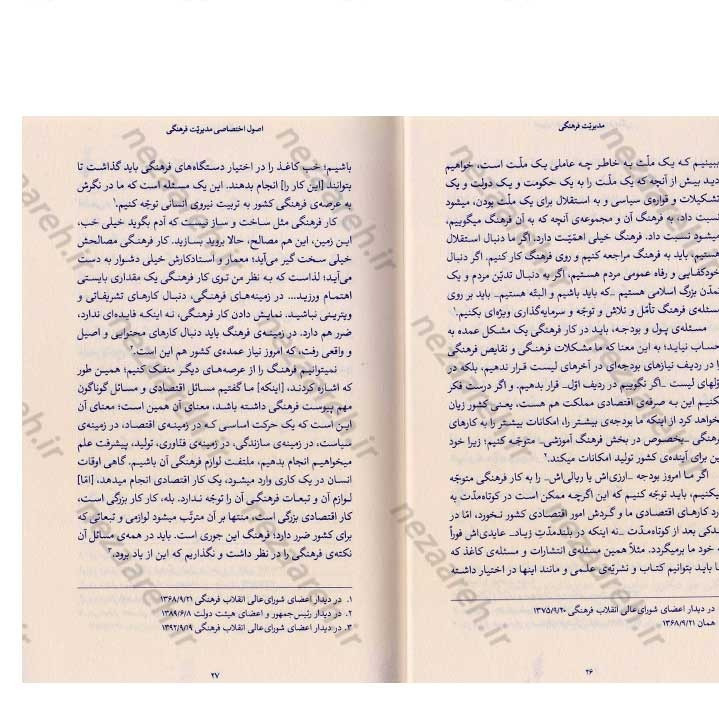 مدیریّت فرهنگی
ببینیم که یک ملّت به خاطر چه عاملی یک ملّت است، خواهیم
دید بیش از آنچه که یک ملّت را به یک حکومت و یک دولت و یک
تشکیلات و قواره‌ی سیاسی و به استقلال برای یک ملّت بودن، میشود
نسبت داد، به فرهنگ آن و مجموعه‌ی آنچه که به آن فرهنگ میگوییم،
میشود نسبت داد. فرهنگ خیلی اهمّیّت دارد. اگر ما دنبال استقلال
هستیم، باید به فرهنگ مراجعه کنیم و روی فرهنگ کار کنیم. اگر دنبال
خودکفایی و رفاه عمومی مردم هستیم، اگر به دنبال تدیّن مردم و یک
تمدّن بزرگ اسلامی هستیم ـ که باید باشیم و البتّه هستیم ـ باید بر روی
مسئله‌ی فرهنگ تأمّل و تلاش و توجّه و سرمایه‌گذاری ویژه‌ای بکنیم.۱
مسئله‌ی پول و بودجه، باید در کار فرهنگی یک مشکل عمده به
حساب نیاید؛ به این معنا که ما مشکلات فرهنگی و نقایص فرهنگی
را در ردیف نیازهای بودجه‌ای در آخرهای لیست قرار ندهیم، بلکه در
اوّلهای لیست ـ اگر نگوییم در ردیف اوّل ـ قرار بدهیم. و اگر درست فکر
بکنیم این به صرفه‌ی اقتصادی مملکت هم هست، یعنی کشور زیان
نخواهد کرد از اینکه ما بودجه‌ی بیشتر را، امکانات بیشتر را به کارهای
فرهنگی ـ بخصوص در بخش فرهنگ آموزشی ـ متوجّه کنیم؛ زیرا خود
این برای آینده‌ی کشور تولید امکانات میکند.۲
اگر ما امروز بودجه ـ ارزی‌اش یا ریالی‌اش ـ را به کار فرهنگی متوجّه
میکنیم، باید توجّه کنیم که این اگرچه ممکن است در کوتاه‌مدّت به
درد کارهای اقتصادی ما و گردش امور اقتصادی کشور نخورد، امّا در
اندکی بعد از کوتاه‌مدّت ـ نه اینکه در بلندمدّت زیاد ـ عایدی‌اش فوراً
به خود ما برمیگردد. مثلاً همین مسئله‌ی انتشارات و مسئله‌ی کاغذ که
ما باید بتوانیم کتاب و نشریّه‌ی علمی و مانند اینها در اختیار داشته
در دیدار اعضای شورای‌عالی انقلاب فرهنگی ۱۳۷۵/۹/۲۰
همان ۱۳۶۸/۹/۲۱
۲۶
اصول اختصاصی مدیریّت فرهنگی
باشیم؛ خب کاغذ را در اختیار دستگاه‌های فرهنگی باید گذاشت تا
بتوانند [این کار را] انجام بدهند. این یک مسئله است که ما در نگرش
به عرصه‌ی فرهنگی کشور به تربیت نیروی انسانی توجّه کنیم.۱
کار فرهنگی مثل ساخت و ساز نیست که آدم بگوید خیلی خب،
این زمین، این هم مصالح، حالا بروید بسازید. کار فرهنگی مصالحش
خیلی سخت گیر می‌آید؛ معمار و استادکارش خیلی دشوار به دست
می‌آید؛ لذاست که به نظر من توی کار فرهنگی یک مقداری بایستی
اهتمام ورزید... در زمینه‌های فرهنگی، دنبال کارهای تشریفاتی و
ویترینی نباشید. نمایش دادن کار فرهنگی، نه اینکه فایده‌ای ندارد،
ضرر هم دارد. در زمینه‌ی فرهنگ باید دنبال کارهای محتوایی و اصیل
و واقعی رفت، که امروز نیاز عمده‌ی کشور هم این است.۲
نمیتوانیم فرهنگ را از عرصه‌های دیگر منفک کنیم؛ همین طور
که اشاره کردند، [اینکه] ما گفتیم مسائل اقتصادی و مسائل گوناگون
مهم پیوست فرهنگی داشته باشد، معنای آن همین است؛ معنای آن
این است که یک حرکت اساسی که در زمینه‌ی اقتصاد، در زمینه‌ی
سیاست، در زمینه‌ی سازندگی، در زمینه‌ی فنّاوری، تولید، پیشرفت علم
میخواهیم انجام بدهیم، ملتفت لوازم فرهنگی آن باشیم. گاهی اوقات
انسان در یک کاری وارد میشود، یک کار اقتصادی انجام میدهد، [امّا]
لوازم آن و تبعات فرهنگی آن را توجّه ندارد. بله، کار کار بزرگی است،
کار اقتصادی بزرگی است، منتها بر آن مترتّب میشود لوازمی و تبعاتی که
برای کشور ضرر دارد؛ فرهنگ این جوری است. باید در همه‌ی مسائل آن
نکته‌ی فرهنگی را در نظر داشت و نگذاریم که این از یاد برود.۳
۱. در دیدار اعضای شورای‌عالی انقلاب فرهنگی ۱۳۶۸/۹/۲۱
۲. در دیدار رئیس‌جمهور و اعضای هیئت دولت ۱۳۸۹/۶/۸
۳. در دیدار اعضای شورای‌عالی انقلاب فرهنگی ۱۳۹۲/۹/۱۹
۲۷
nezaareh.ir